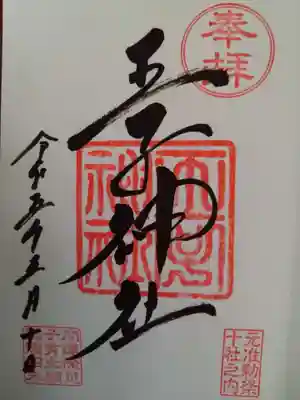 奉拝
王子神社
令和五年五月十日
元准勅祭
十社之内